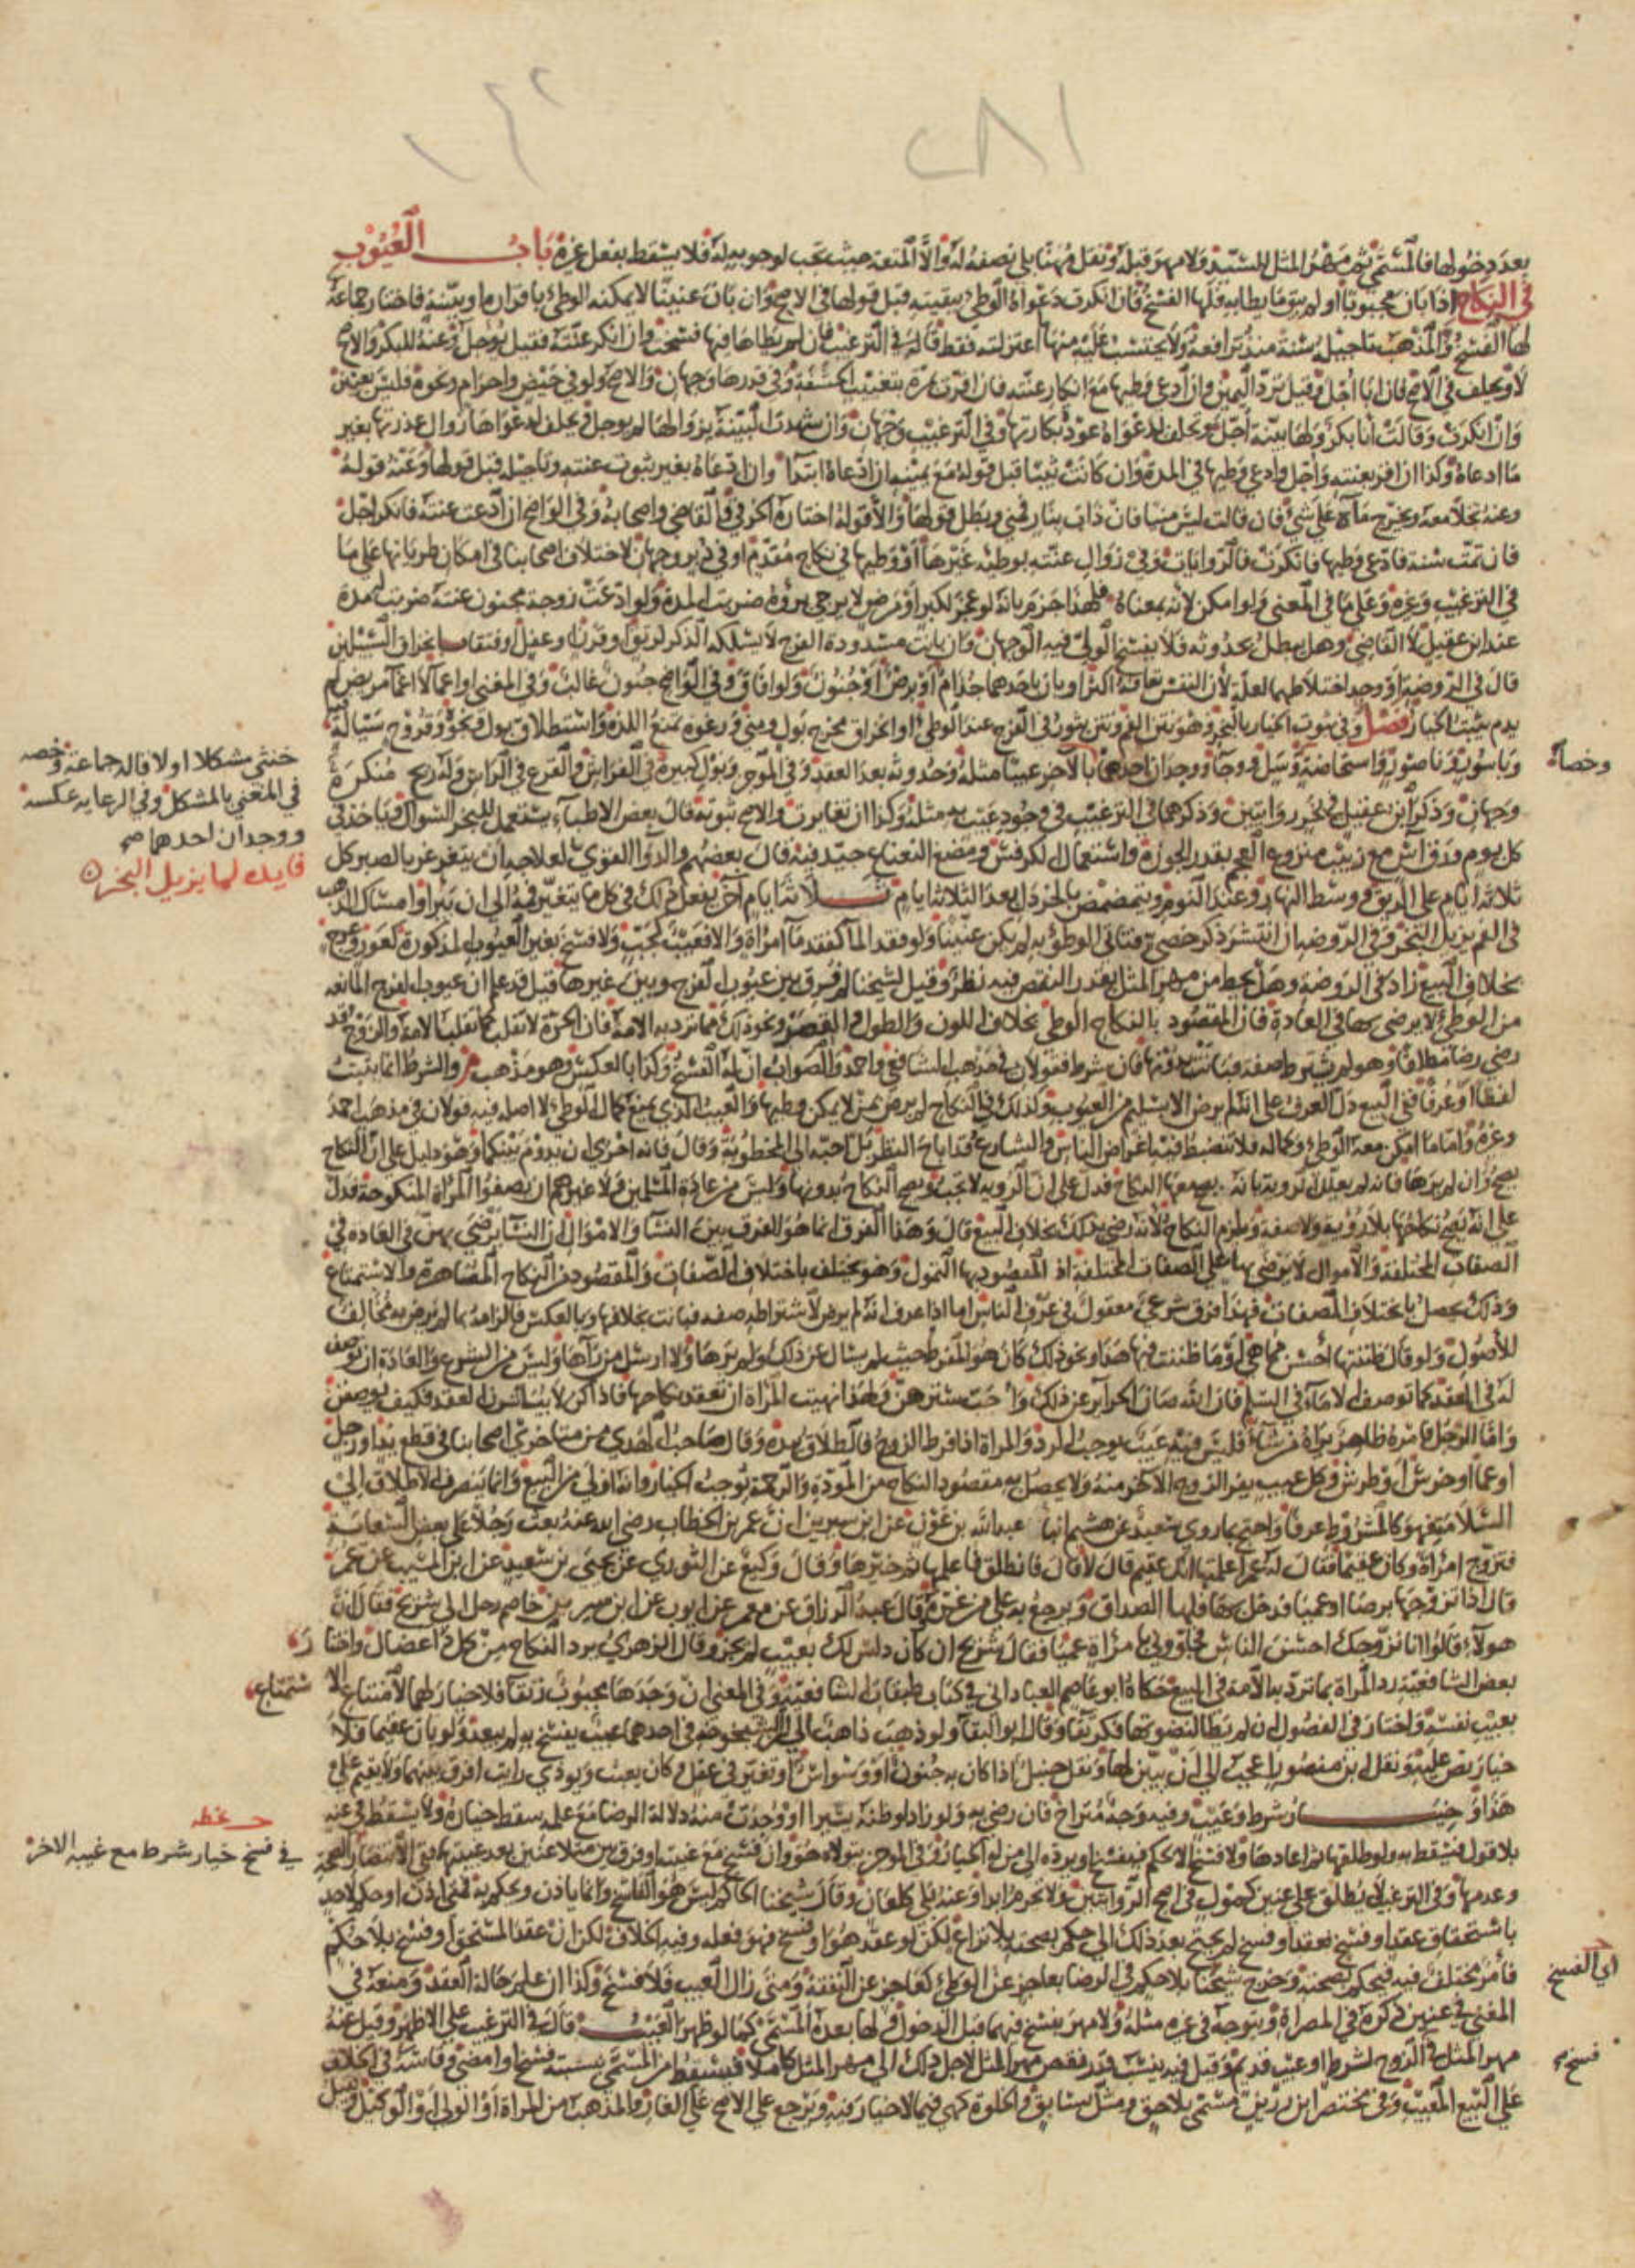 بعد دخولها فالمسمى ثم مهر المثل للسيد ولا مهر قبله ونقل مهنا بلى نصفه له والا المتعة حيث تجب لوجوبه له فلا يسقط بفعل غيره باب العيوب
في النكاح اذا بان مجبوبا او لم يبق ما يطا به فلها الفسخ فان انكرت دعواه الوطئ ببقيته قبل قولها في الاصح وان بان عنينا لا يمكنه الوطئ باقراره او بينة فاختار جماعة
لها الفسخ والمذهب تاجيله سنة منذ ترافعه ولا يحتسب عليه منها اعتزلته فقط قاله في الترغيب فان لم يطاها فيها فسخت وان انكر عنته فقيل يؤجل وعنه للبكر والاصح
لا ويحلف في الاصح فان ابا اجل وقيل ترد اليمين وان ادعى وطيها مع انكار عنته فان اقرت مرة بتغييب الحشفة وفي قدرها وجهان والاصح ولو في حيض واحرام ونحوه فليس بعنين
وان انكرت وقالت انا بكر ولها بينة اجل وتحلف لدعواه عود بكارتها وفي الترغيب وجهان وان شهدت البينة بزوالها لم يوجل ويحلف لدعواها زوال عذرتها بغير
ما ادعاه وكذا ان اقر بعنته واجل وادعى وطيها في المدة وان كانت ثيبا قبل قوله مع يمينه ان ادعاه ابتدا وان ادعاه بغير ثبوت عنته وتاجيله قبل قولها وعنه قوله
وعنه يخلا معه ويخرج ماه على شئ فان قالت ليس منيا فان ذاب بنار فمني وبطل قولها والا قوله اختاره الخرقي والقاضي واصحابه وفي الواضح ان ادعت عنته فانكر اجل
فان تمت سنة فادعى وطيها فانكرت فالروايات وفي زوال عنته بوطئه غيرها او وطيها في نكاح متقدم او في دبر وجهان لاختلاف اصحابنا في امكان طريانها على ما
في الترغيب وغيره وعلى ما في المعنى ولو امكن لانه بمعناه فلهذا جزم بانه لو عجز لكبر او مرض لا يرجى برؤه ضربت المدة ولو ادعت زوجة مجنون عنته ضربت لمدة
عند ابن عقيل لا القاضي وهل يبطل بحدوثه فلا يفسخ الولي فيه الوجهان وان بانت مسدودة الفرج لا يسلكه الذكر لرتق او قرن او عفل او فتقا بانخراق السبيلين
قال في الروضة او وجد اختلاطهما لعلة لان النفس تعافه اكثر او بان باحدهما جذام او برص او جنون ولو افاق وفي الواضح جنون غالب وفي المغني او اغما لا اغما مريض لم
يدم يثبت الخيار فصل وفي ثبوت الخيار بالبخر وهو نتن الفم ونتن يثور في الفرج عند الوطئ او انخراق مخرج بول ومني ورغوة تمنع اللذة واستطلاق بول ونجو وقروح سيالة
وباسور وناصور واستحاضة وسلل ووجا ووجدان احدهما بالاخر عيبا مثله وحدوثه بعد العقد وفي الموجز وبول كبيرة في الفراش والقرع في الراس وله ريح منكرة
وجهان وذكر ابن عقيل في نحر روايتين وذكرهما في الترغيب في وجود عيب به مثله وكذا ان تغايرت والاصح ثبوته قال بعض الاطباء يستعمل للبخر السواك وياخذ في
كل يوم ورق اس مع زبيب منزوع العجم بقدر الجوزة واستعمال الكرفس ومضغ النعناع جيد فيه قال بعضهم والدوا القوي لعلاجه ان يتغرغر بالصبر كل
ثلاثة ايام على الريق ووسط النهار وعند النوم ويتمضمض بالخردل بعد الثلاثة ايام ثلاثة ايام اخر يفعل ذلك في كل ما يتغير فمه الى ان يبرا وامساك الذهب
في الفم يزيل البخر وفي الروضة ان انتشر ذكر خصي وتاتى الوطؤ به لم يكن عنينا ولو فقد الما كفقد ما امراة والا فعيب كجب ولا فسخ بغير العيوب المذكورة كعور وعرج
بخلاف البيع زاد في الروضة وهل يحط من مهر المثل بقدر النقص فيه نظر وقيل لشيخنا لم فرق بين عيوب الفرج وبين غيرها قيل قد علم ان عيوب الفرج المانعه
من الوطئ لا يرضى بها في العادة فان المقصود بالنكاح الوطئ بخلاف اللون والطول والقصر ونحو ذلك مما ترد به الامة فان الحرة لا تقلب كما تقلب الامة والزوج قد
رضي رضا مطلقا وهو لم يشترط صفة فبانت دونها فان شرط فقولان في مذهب الشافعي واحمد والصواب ان له الفسخ وكذا بالعكس وهو مذهب م والشرط انما يثبت
لفظا او عرفا ففي البيع دل العرف على انه لم يرض الا بسليم من العيوب وكذلك في النكاح لم يرض بمن لا يمكن وطيها والعيب الذي يمنع كمال الوطئ لا اصله فيه قولان في مذهب احمد
وغيره واما ما امكن معه الوطئ وكماله فلا تنضبط فيه اغراض الناس والشارع قد اباح النظر بل احبه الى المخطوبة وقال فانه احرى ان يدوم بينكما وهو دليل على ان النكاح
يصح وان لم يرها فانه لم يعلل الروية بانه يصح معها النكاح فدل على ان الروية لا تجب ويصح النكاح بدونها وليس من عادة المسلمين ولا غيرهم ان يصفوا المراة المنكوحة فدل
على انه يصح نكاحها بلا رؤية ولا صفة ويلزم النكاح لانه رضي بذلك بخلاف البيع قال وهذا الفرق انما هو الفرق بين النسا والاموال ان النسا يرضى بهن في العادة في
الصفات المختلفة والاموال لا يرضى بها على الصفات المختلفة اذ المقصود بها التمول وهو يختلف باختلاف الصفات والمقصود من النكاح المصاهرة والاستمتاع
وذلك يحصل باختلاف الصفات فهذا فرق شرعي معقول في عرف الناس اما اذا عرف انه لم يرض لاشتراطه صفة فبانت بخلافها وبالعكس فالزامه بما لم يرض به مخالف
للاصول ولو قال ظننتها احسن مما هي او ما ظننت فيها هذا ونحو ذلك كان هو المفرط حيث لم يسال عن ذلك ولم يرها ولا ارسل من رآها وليس من الشرع والعادة ان توصف
له في العقد كما توصف الاماء في السلم فان الله صان الحراير عن ذلك واحب سترهن ولهذا نهيت المراة ان تعقد نكاحها فاذا كن لا يباشرن العقد فكيف يوصفن
واما الرجل فامره ظاهر يراه من شاء فليس فيه عيب يوجب الرد والمراة اذا فرط الزوج فالطلاق بيده وقال صاحب الهدي من متاخري اصحابنا في قطع يد او رجل
او عما او خرس او طرش وكل عيب يفر الزوج الاخر منه ولا يحصل به مقصود النكاح من المودة والرحمة يوجب الخيار وانه اولى من البيع وانما ينصرف الاطلاق الى
السلامة فهو كالمشروط عرفا واحتج بما روى سعيد عن هشيم انبا عبد الله بن عون عن ابن سيرين ان عمر بن الخطاب رضي الله عنه بعث رجلا على بعض السعاية
فتزوج امراة وكان عقيما فقال له عمر اعلمتها انك عقيم قال لا قال فانطلق فاعلمها ثم خيرها وقال وكيع عن الثوري عن يحيى بن سعيد عن ابن المسيب عن عمر
قال اذا تزوجها برصا او عميا فدخل بها فلها الصداق ويرجع به على من غره وقال عبد الرزاق عن معمر عن ايوب عن ابن سيرين خاصم رجل الى شريح فقال ان
هولاء قالوا انا نزوجك احسن الناس فجاؤوني بامراة عميا فقال شريح ان كان دلس لك بعيب لم يجز وقال الزهري يرد النكاح من كل داء عضال واختار
بعض الشافعية رد المراة بما ترد به الامة في البيع حكاه ابو عاصم العباداني في كتاب طبقات الشافعية وفي المغني ان وجدها مجبوب رتقا فلا خيار لهما لامتناع الاستمتاع
بعيب نفسه واختار في الفصول ان لم يطا لنضوتها فكرتقا وقال ابو البقا ولو ذهب ذاهب الى ان الشيخوخة في احدهما عيب يفسخ به لم يبعد ولو بان عقيما فلا
خيار نص عليه ونقل ابن منصور اعجب الي ان يبين لها ونقل حنبل اذا كان به جنون او وسواس او تغير في عقل وكان يعبث ويوذي رايت افرق بينهما ولا يقيم على
هذا وخيار شرط وعيب وفيه وجه متراخ فان رضي به ولو زاد او ظنه يسيرا او وجدت منه دلالة الرضا مع علمه سقط خياره ولا يسقط في عنه
بلا قول فيسقط به ولو طلقها ثم اعادها ولا فسخ الا بحكم فيفسخ او يرده الى من له الخيار وفي الموجز يتولاه هو وان فسخ مع غيبته او فرق بين متلاعنين بعد غيبتهما ففي الانتصار الصحة
وعدمها وفي الترغيب لا يطلق على عنين كمول في اصح الروايتين ولا تحرم ابدا وعنه بلى كلعان وقال شيخنا الحاكم ليس هو الفاسخ وانما ياذن ويحكم به فمتى اذن او حكم لاحد
باستحقاق عقد او فسخ فعقد او فسخ لم يحتج بعد ذلك الى حكم بصحته بلا نزاع لكن لو عقد هو او فسخ فهو فعله وفيه الخلاف لكن ان عقد المستحق او فسخ بلا حكم
فامر مختلف فيه فيحكم بصحته وخرج شيخنا بلا حكم في الرضا بعاجز عن الوطئ كعاجز عن النفقة ومتى زال العيب فلا فسخ وكذا ان علم حالة العقد ومنعه في
المغني في عنين ذكره في المصراة ويتوجه في غيره مثله ولا مهر بفسخ فيهما قبل الدخول ولها بعده المسمى كما لو ظهر العيب قال في الترغيب على الاظهر وقيل عنه
مهر المثل في الزوج لشرط او عيب قديم وقيل فيه ينسب قدر نقص مهر المثل لاجل ذلك الى مهر المثل كاملا فيسقط من المسمى بنسبته فسخ او امضى وقاسه في الخلاف
على البيع المعيب وفي مختصر ابن رزين مسمى بلاحق ومثل بسابق والخلوة كهي فيما لا خيار فيه ويرجع على الاصح على الغار والمذهب من المراة او الولي او الوكيل وقيل
وخصا
خنثى مشكلا او لا قاله جماعة وخصه
في المغني بالمشكل وفي الرعاية عكسه
ووجدان احدهما صح
فايدة لما يزيل البخر
في فسخ خيار شرط مع غيبة الاخر
اي الفسخ
فسخ